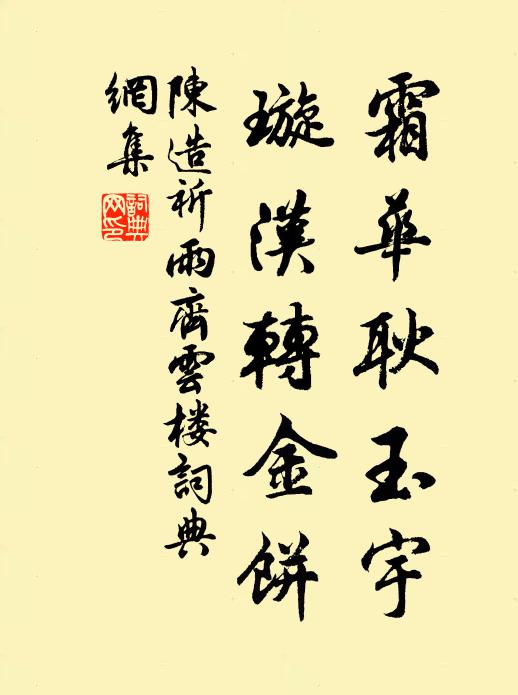 霜華耿玉宇
璇漢轉金餅
陳造祈雨齊雲楼詞典
網集
詞典
网印